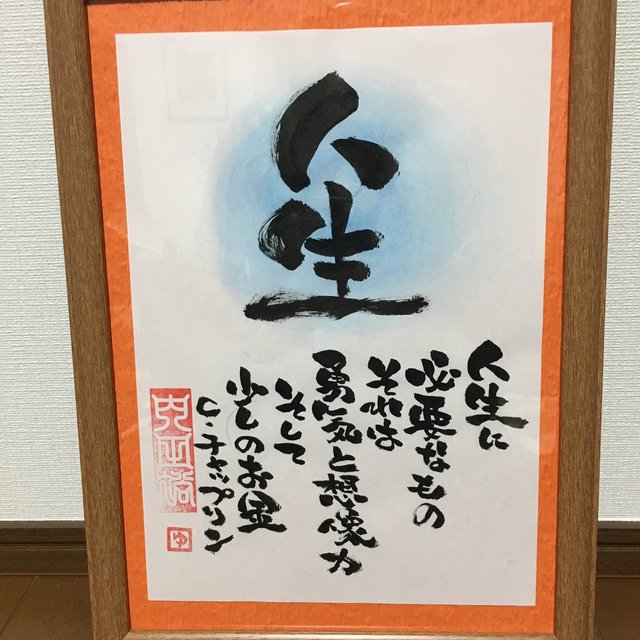 人生
人生に
必要なもの
それは
勇気と想像力
そして
少しのお金
C・チャップリン
ゆ